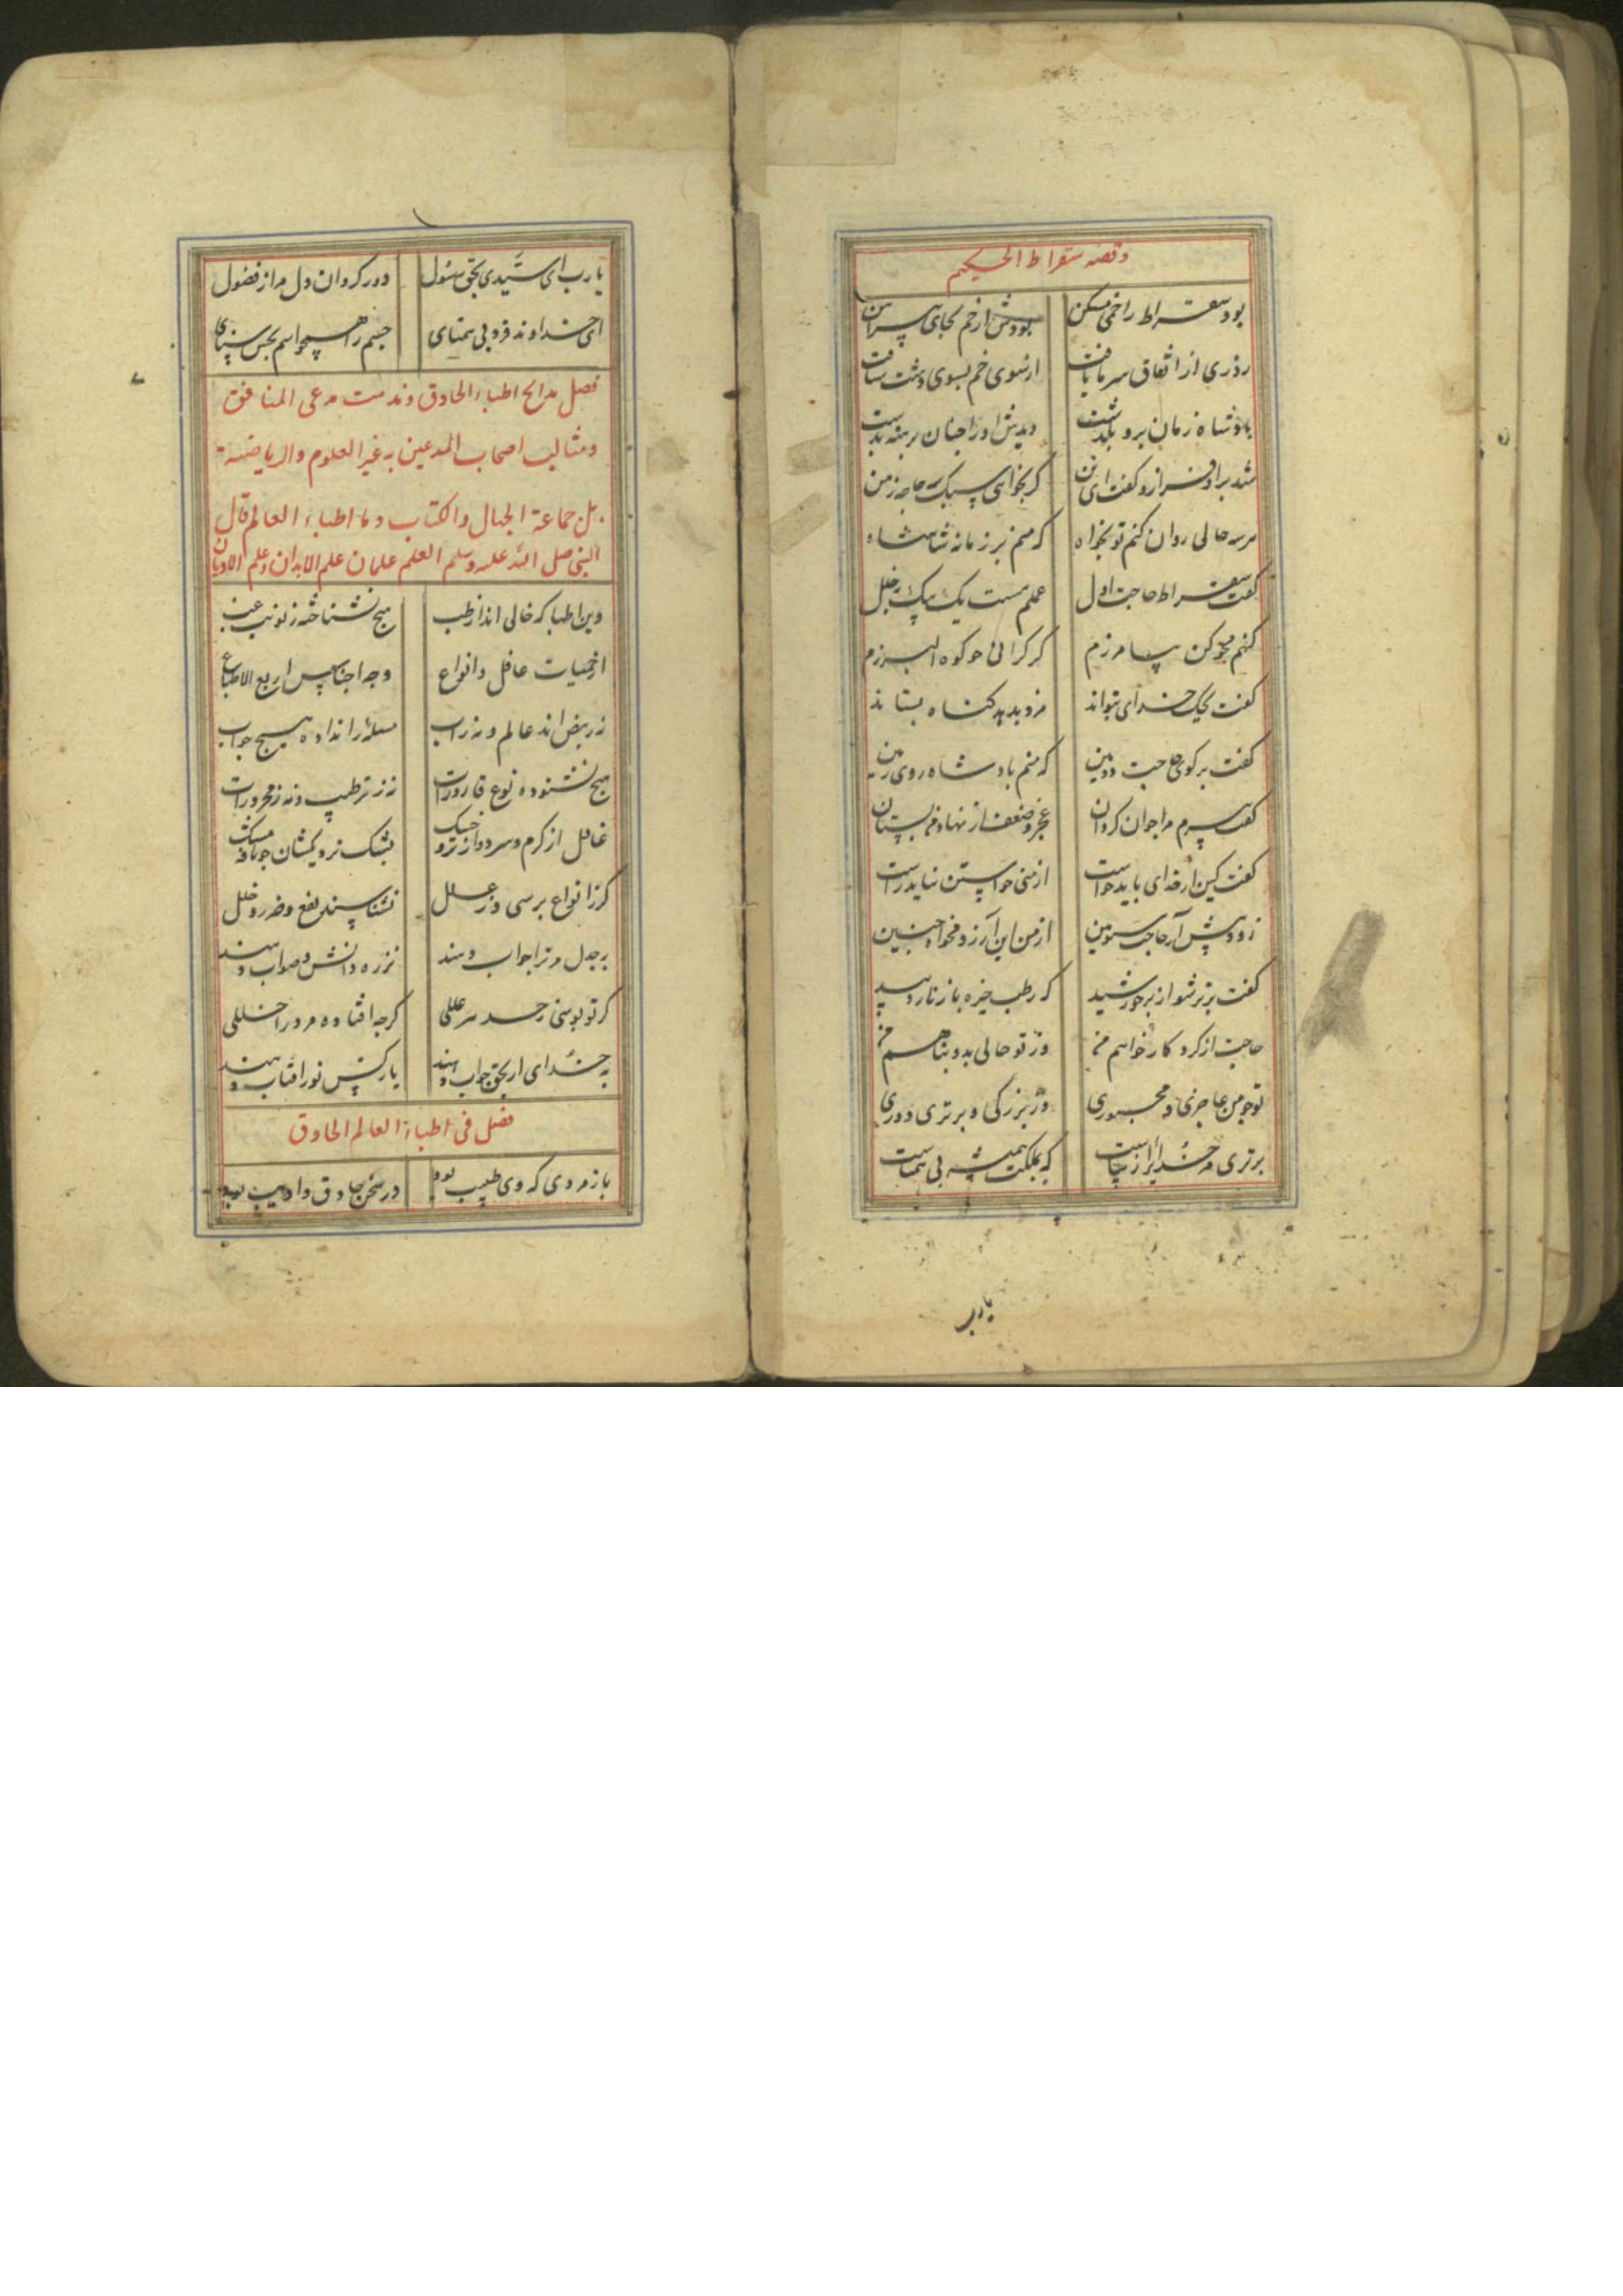 وقصه سقراط الحکیم
بود سقراط را خمی مسکن بودش از خم بجای پیراهن
روزی از اتفاق سرما یافت از سوی خم بسوی دشت شتافت
پادشاه زمان برو بگذشت دیدش او را چنان برهنه بدست
شد بر او فراز و گفت ای تن گر بخواهی سبک سه حاجه زمن
هر سه حالی روان کنم تو بخواه که منم بر زمانه شاهنشاه
گفت سقراط حاجت اول عملم هست یک بیک بخلل
کنهم محو کن بیامرزم کز کرانی چو کوه البرزم
گفت ویحک خدای بتواند مزد بدهد کناه بستاند
گفت برکوی حاجت دومین که منم پادشاه روی زمین
گفت پیرم مرا جوان کردان عجز و ضعف از نهاد من بستان
گفت کین از خدای باید خواست از منی خواستن نیاید راست
زود پیش آر حاجت سومین از من این آرزو مخواه چنین
گفت برتر شو از بر خورشید که رطب خیره بار نارد بید
حاجت از کردکار خواهم من وز تو حالی بدو پناهم من
تو چو من عاجزی و مجبوری وز بزرکی و برتری دوری
برتری مر خدایرا زیباست که بملکت همیشه بی همتاست
یارب
یارب ای سیدی بحق رسول دور کردان دل مرا از فضول
ای خداوند فرد بی همتای جسم را همچو اسم بخش سنای
فصل مدایح اطباء الحاذق و مذمت مدعی المنافق
ومثالب اصحاب المدعین به غیر العلوم والریاضة
بل جماعة الجهال والکتاب وما اطباء العالم قال
النبی صلی الله علیه وسلم العلم علمان علم الابدان وعلم الادیان
وین اطبا که خالی اند از طب هیچ نشناخته ز نوبت غب
از حمیات غافل و انواع وجه اجناس اربع الاضلاع
نه ز نبض اند عالم و نه ز آب مسئله را نداده هیچ جواب
هیچ نشنوده نوع قارورات نه ز ترطیب و نه ز محرورات
غافل از گرم و سرد و از تر و خشک پشک نزدیکشان چو نافه مشک
کر ز انواع پرسی و ز علل نشناسند نفع و ضر و خلل
به جدل مر ترا جواب دهند نز ره دانش و صواب دهند
کر تو پرسی ز حد هر عللی کرچه افتاده مر ورا خللی
به خدای ار بحق جواب دهند یارکش نور آفتاب دهند
فصل فی اطباء العالم الحاذق
باز مردی که وی طبیب بود در سخن حاذق و ادیب بود